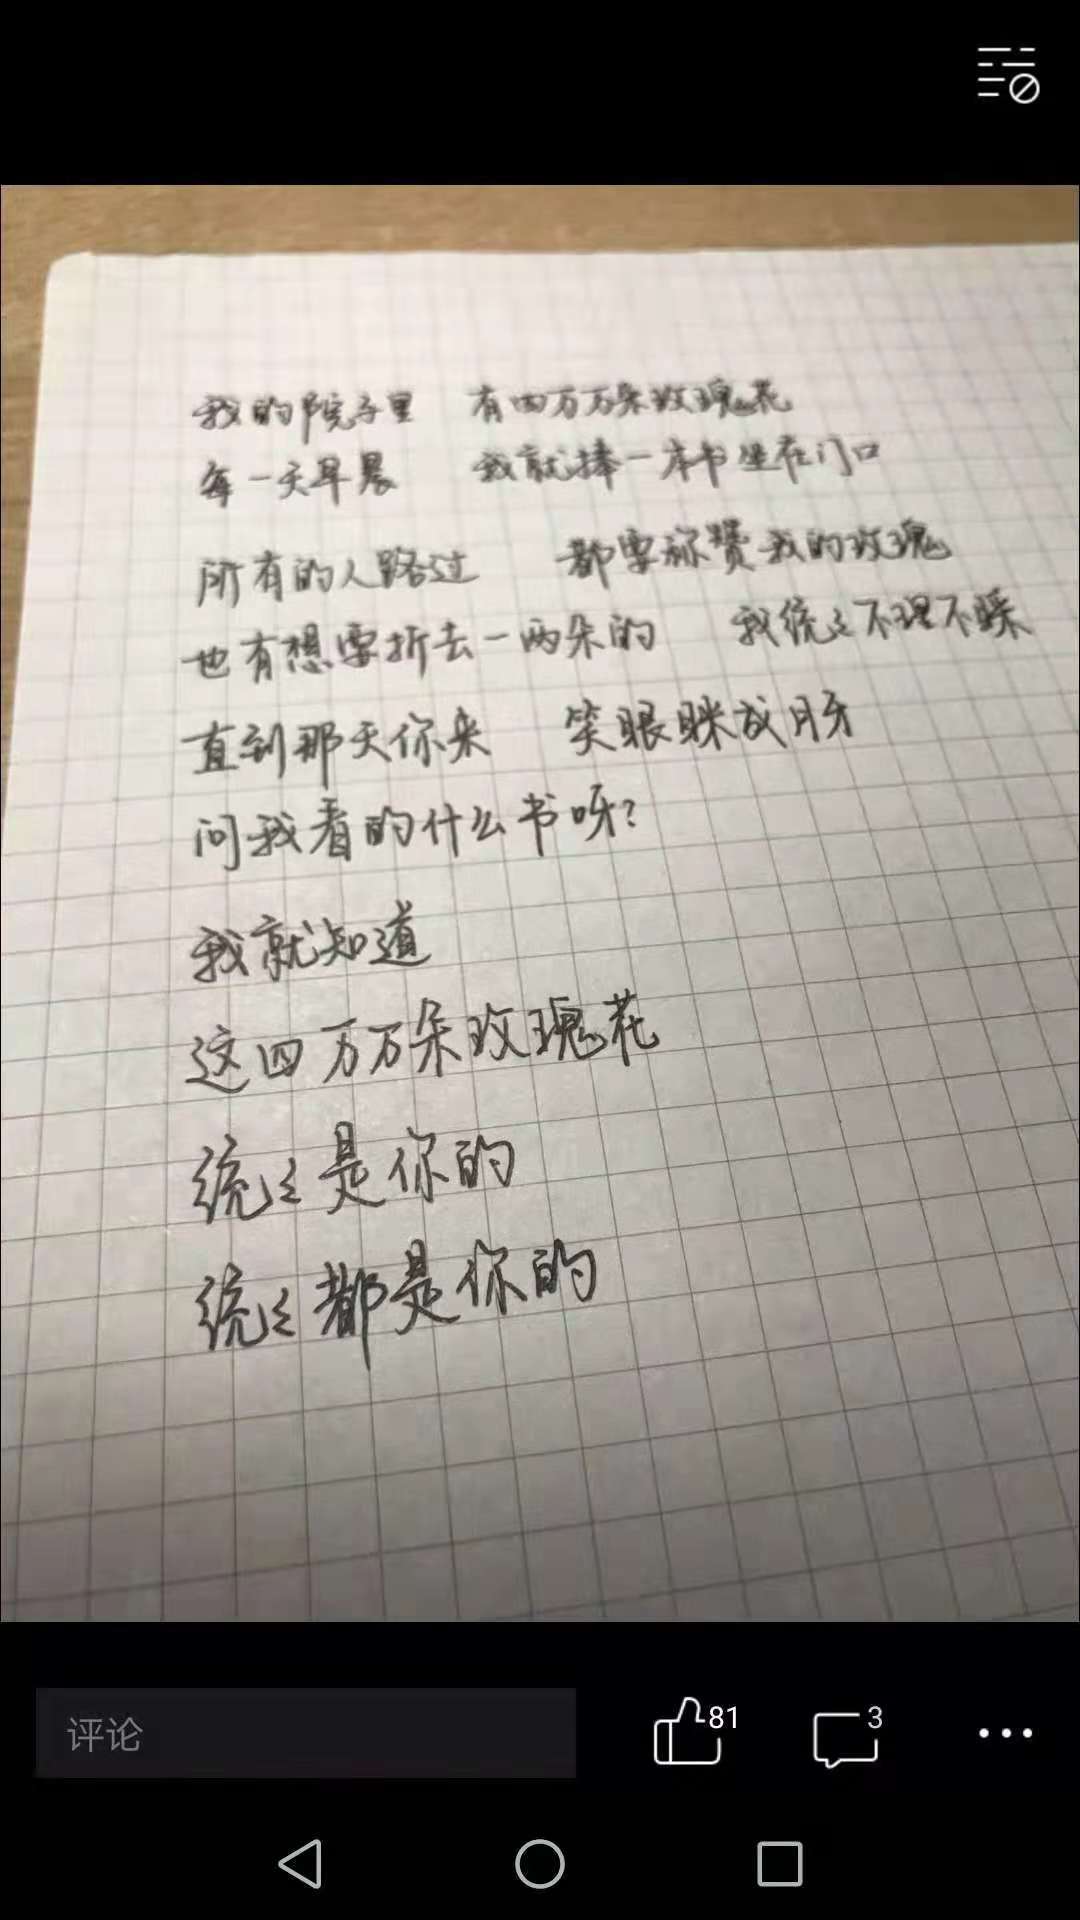 我的院子里 有四万万朵玫瑰花
每一天早晨 我就捧一本书坐在门口
所有的人路过 都要称赞我的玫瑰
也有想要折去一两朵的 我统统不理不睬
直到那天你来 笑眼眯成月牙
问我看的什么书呀?
我就知道
这四万万朵玫瑰花
统统是你的
统统都是你的
评论
81
3